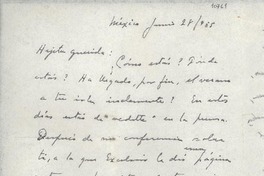 México Junio 28/955
Hijita querida: ¿Cómo estás? ¿Dónde
estás? ¿Ha llegado, por fin, el verano
a tu isla inclemente? En estos
días estás de "vedette" en la prensa.
Después de mi conferencia sobre
ti, a la que Excelsior le dió página